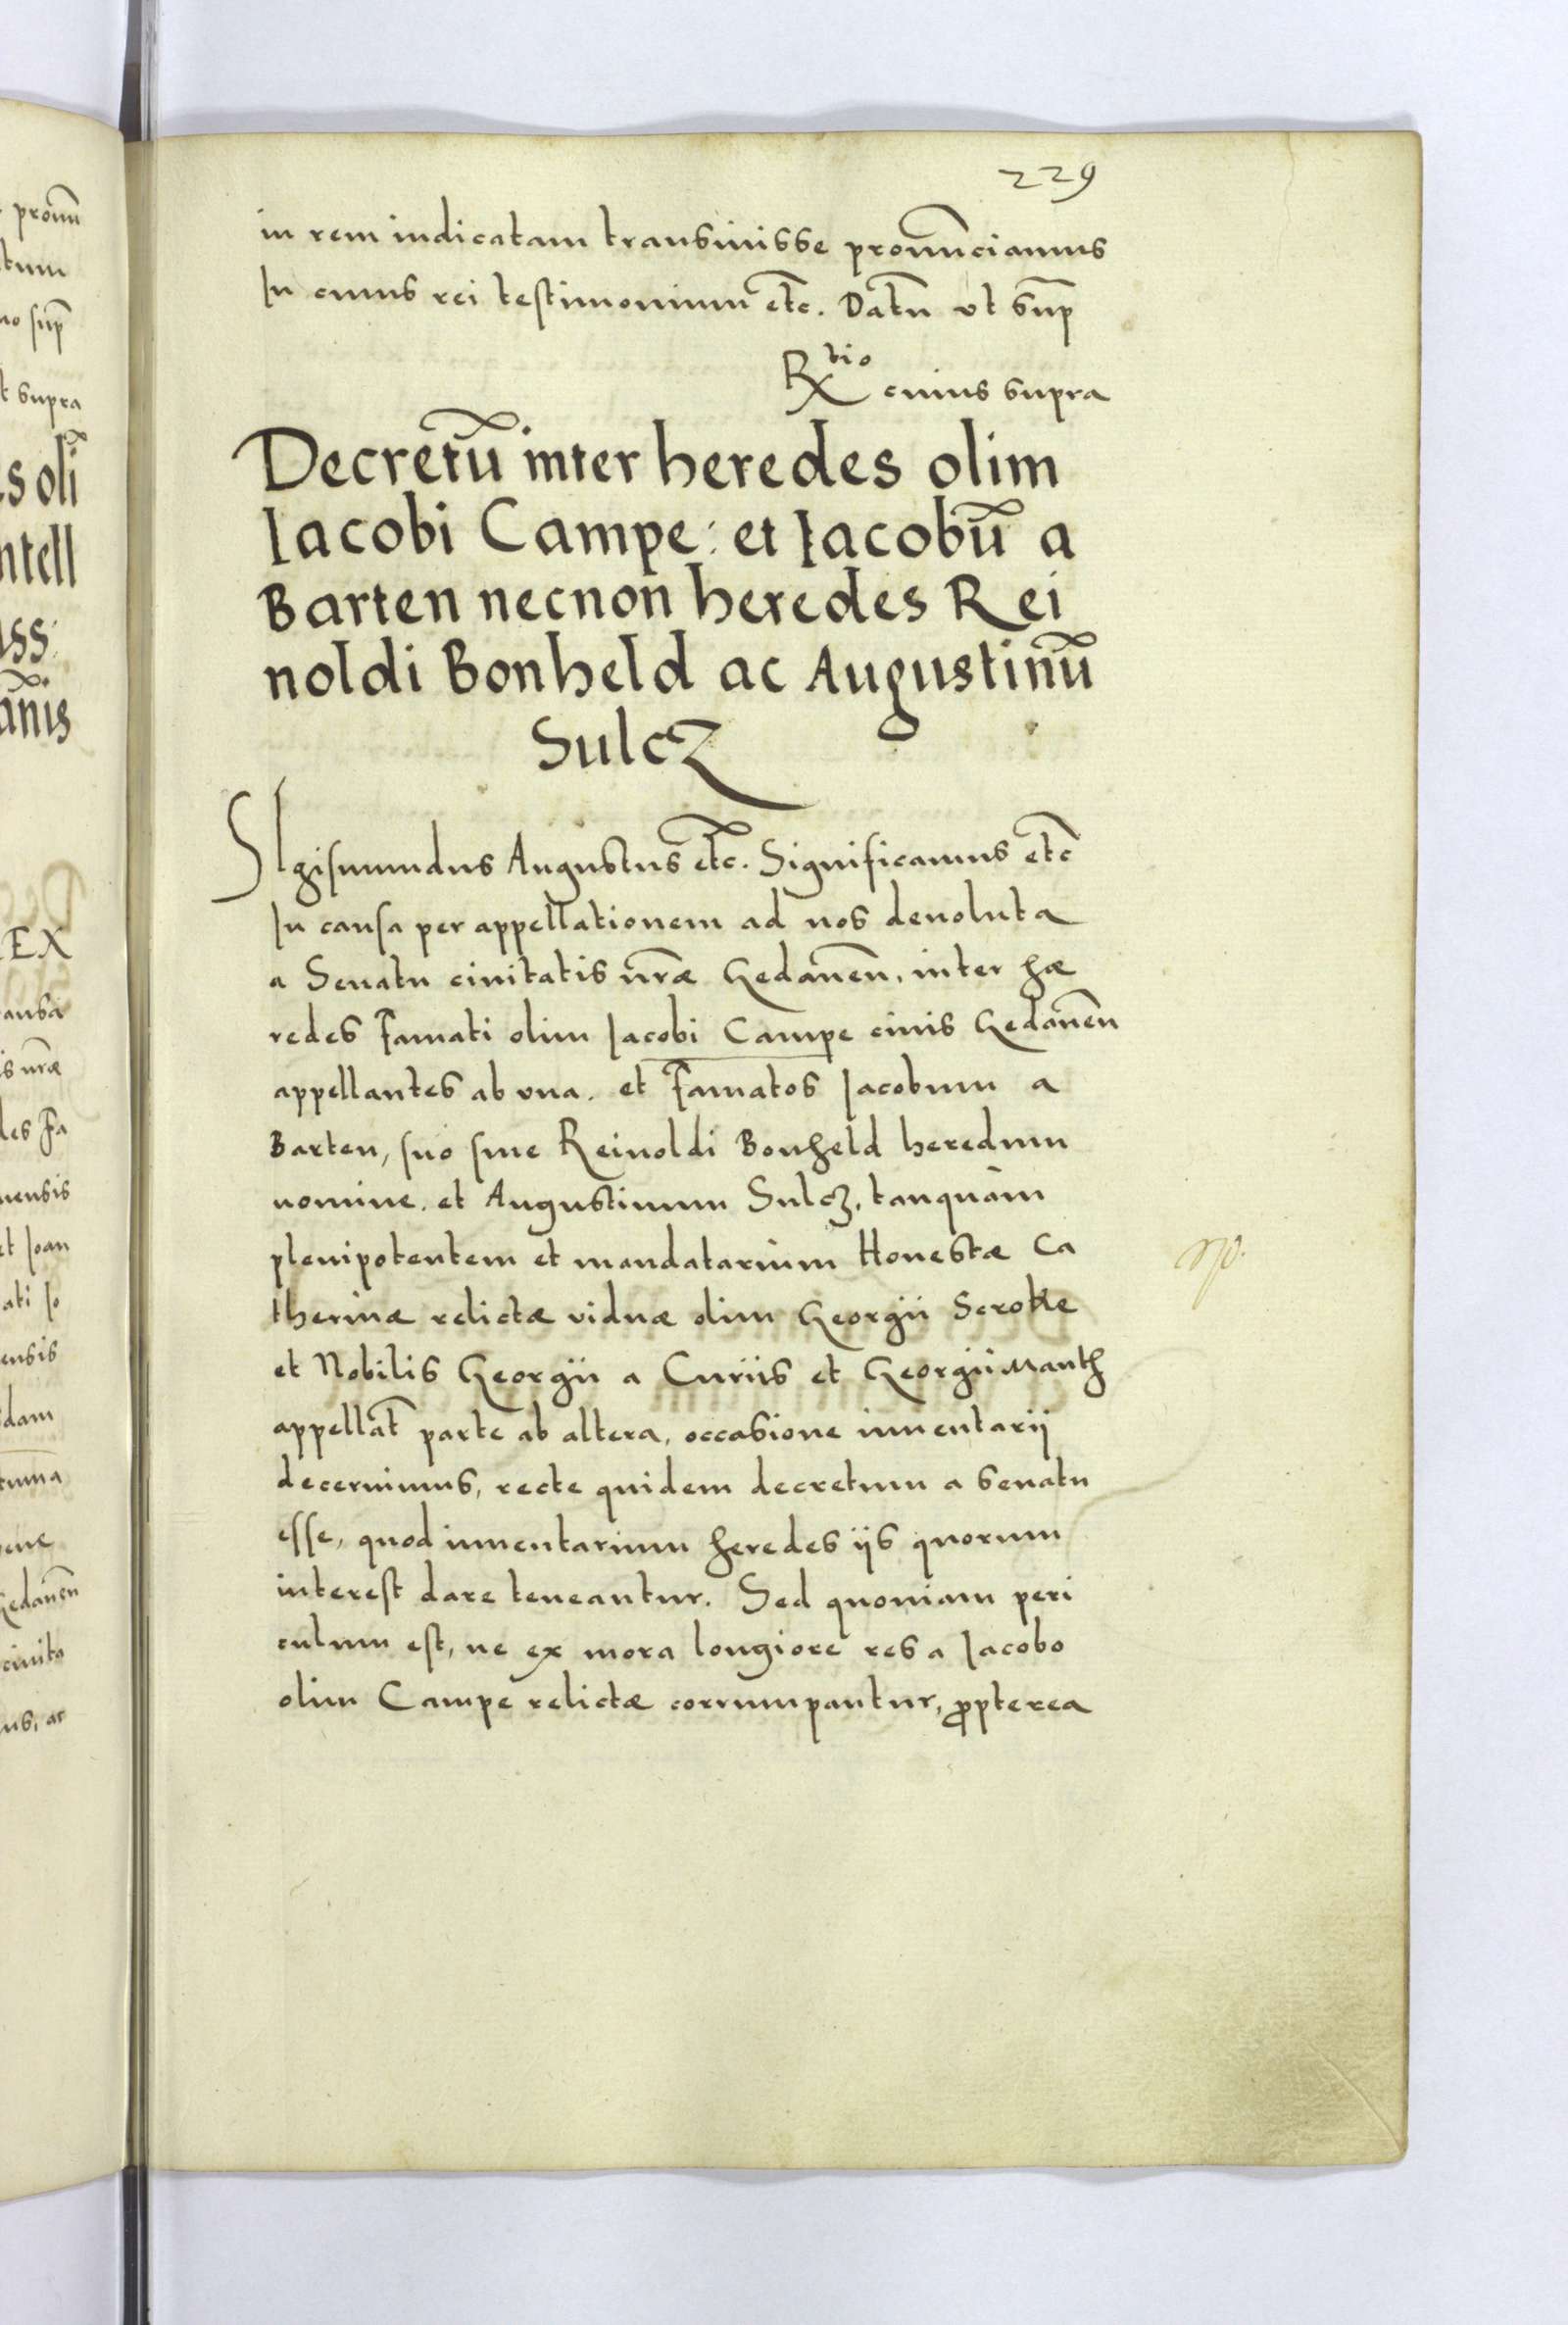 229
in rem iudicatam transiuisse pronūnciamus
In cuius rei testimonium etc. Datū ut sup̄
Rtio cuius supra
Decretū inter heredes olim
Iacobi Campe: et Iacobū a
Barten necnon heredes Rei
noldi Bonheld ac Augustinū
Sulcz
SIgismundus Augustus etc. Significamus etc
In causa per appellationem ad nos deuoluta
a Senatu ciuitatis nr̄æ Gedanen̄, inter hæ
redes Famati olim Iacobi Campe ciuis Gedanen̄
appellantes ab vna. et Famatos Iacobum a
Barten, suo siue Reinoldi Bonheld heredum
nomine. et Augustinum Sulcz, tanquàm
plenipotentem et mandatarium Honestæ Ca
therinæ relictæ viduæ olim Georgii Scrotke
et Nobilis Georgii a Curiis et Georgii Manth
appellat̄ parte ab altera, occasione inuentarij
decernimus, recte quidem decretum a senatu
esse, quod inuentarium heredes ijs quorum
interest dare teneantur. Sed quoniam peri
culum est, ne ex mora longiore res a Iacobo
olim Campe relictæ corrumpantur, ꝓpterea